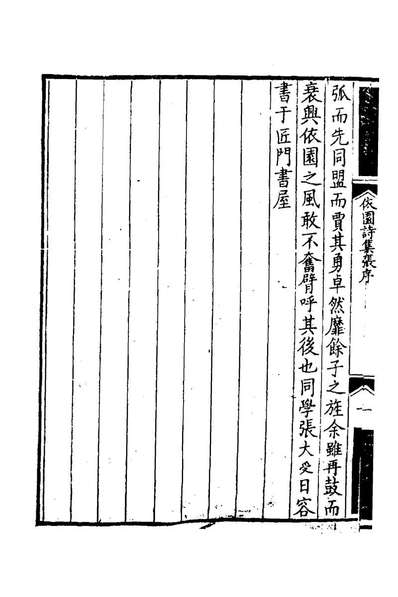 依園詩集張序
一
弧而先同盟而賈其勇卓然靡餘子之旌余雖再鼓而
衰興依園之風敢不奮臂呼其後也同學張大受日容
書于匠門書屋